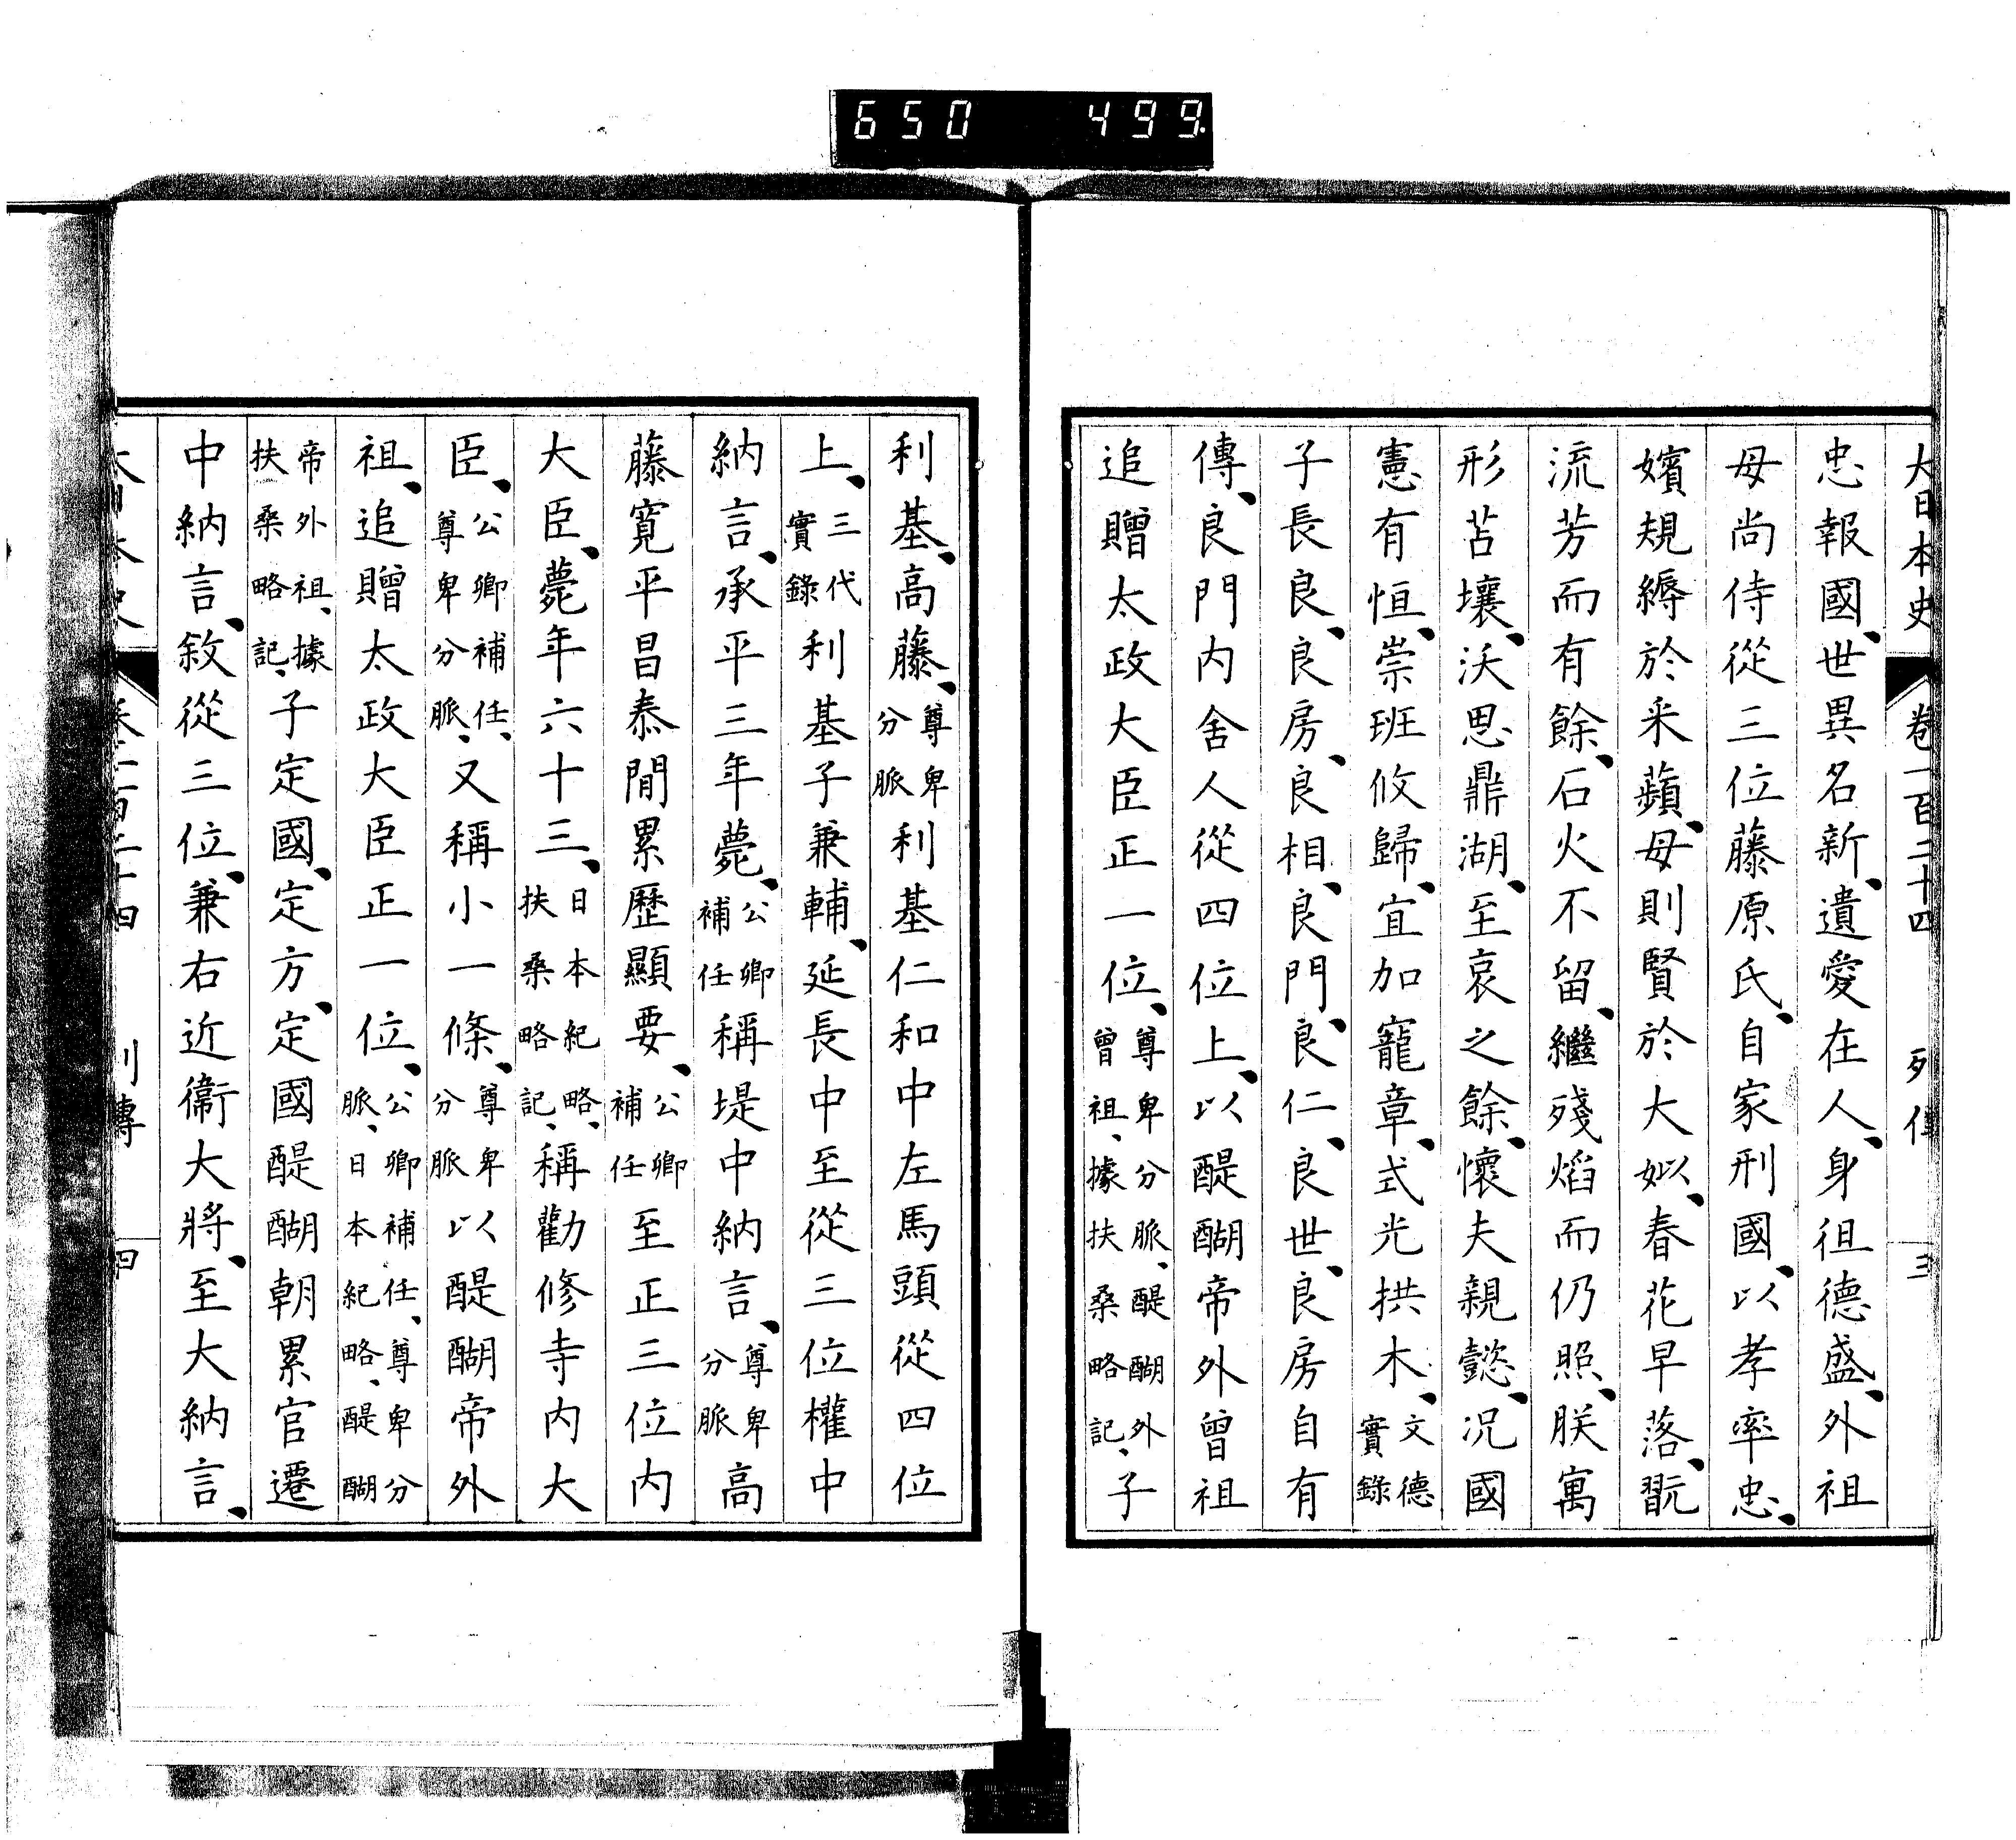 650 499.
大日本史 卷一百二十四 列傳 三
忠報國、世異名新、遺愛在人、身徂德盛、外祖
母尚侍從三位藤原氏、自家刑國、以孝率忠、
嬪規縟於采蘋、母則賢於大姒、春花早落、翫
流芳而有餘、石火不留、繼殘焰而仍照、朕寓
形苫壤、沃思鼎湖、至哀之餘、懷夫親懿、况國
憲有恒、崇班攸歸、宜加寵章、式光拱木、文德實錄
子長良、良房、良相、良門、良仁、良世、良房自有
傳、良門內舍人從四位上、以醍醐帝外曾祖
追贈太政大臣正一位、尊卑分脈、醍醐外曾祖、據扶桑略記、子
利基、高藤、尊卑分脈利基仁和中左馬頭從四位
上、三代實錄利基子兼輔、延長中至從三位權中
納言、承平三年薨、公卿補任稱堤中納言、尊卑分脈高
藤寬平昌泰閒累歷顯要、公卿補任至正三位內
大臣、薨年六十三、日本紀略、扶桑略記、稱勸修寺內大
臣、公卿補任、尊卑分脈、又稱小一條、尊卑分脈以醍醐帝外
祖、追贈太政大臣正一位、公卿補任、尊卑分脈、日本紀略、醍醐
帝外祖、據扶桑略記、子定國、定方、定國醍醐朝累官遷
中納言、敘從三位、兼右近衞大將、至大納言、
大日本史 卷一百二十四 列傳 四